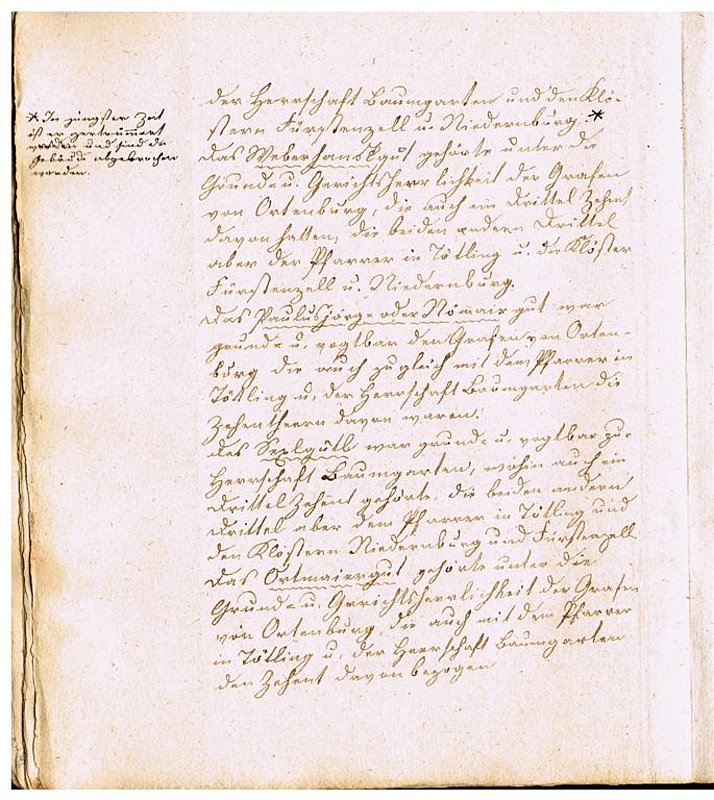 * In jüngster Zeit
ist er zertrümmert
worden und sind die
Gebäude abgebrochen
worden.
der Herrschaft Baumgarten und den Klö-
stern Fürstenzell u. Niedernburg. *
Das Weberhanslgut gehörte unter die
Grund= u. Gerichtsherrlichkeit der Grafen
von Ortenburg, die auch ein Drittel Zehnt
davon hatten, die beiden andern Drittel
aber der Pfarrer in Tötling u. die Klöster
Fürstenzell u. Niedernburg.
Das Paulusjörg= oder Nömair gut war
grund= u. vogtbar den Grafen von Orten-
burg die auch zugleich mit dem Pfarrer in
Tötling u. der Herrschaft Baumgarten die
Zehentherrn davon waren.
Das Sexlgütl war grund= u. vogtbar zur
Herrschaft Baumgarten, wohin auch ein
Drittel Zehent gehörte, die beiden andern
Drittel aber dem Pfarrer in Tötling und
den Klöstern Niedernburg und Fürstenzell
Das Ortmaiergut gehörte unter die
Grund= u. Gerichtsherrlichkeit der Grafen
von Ortenburg, die auch mit dem Pfarrer
in Tötling u. der Herrschaft Baumgarten
den Zehent davon bezogen